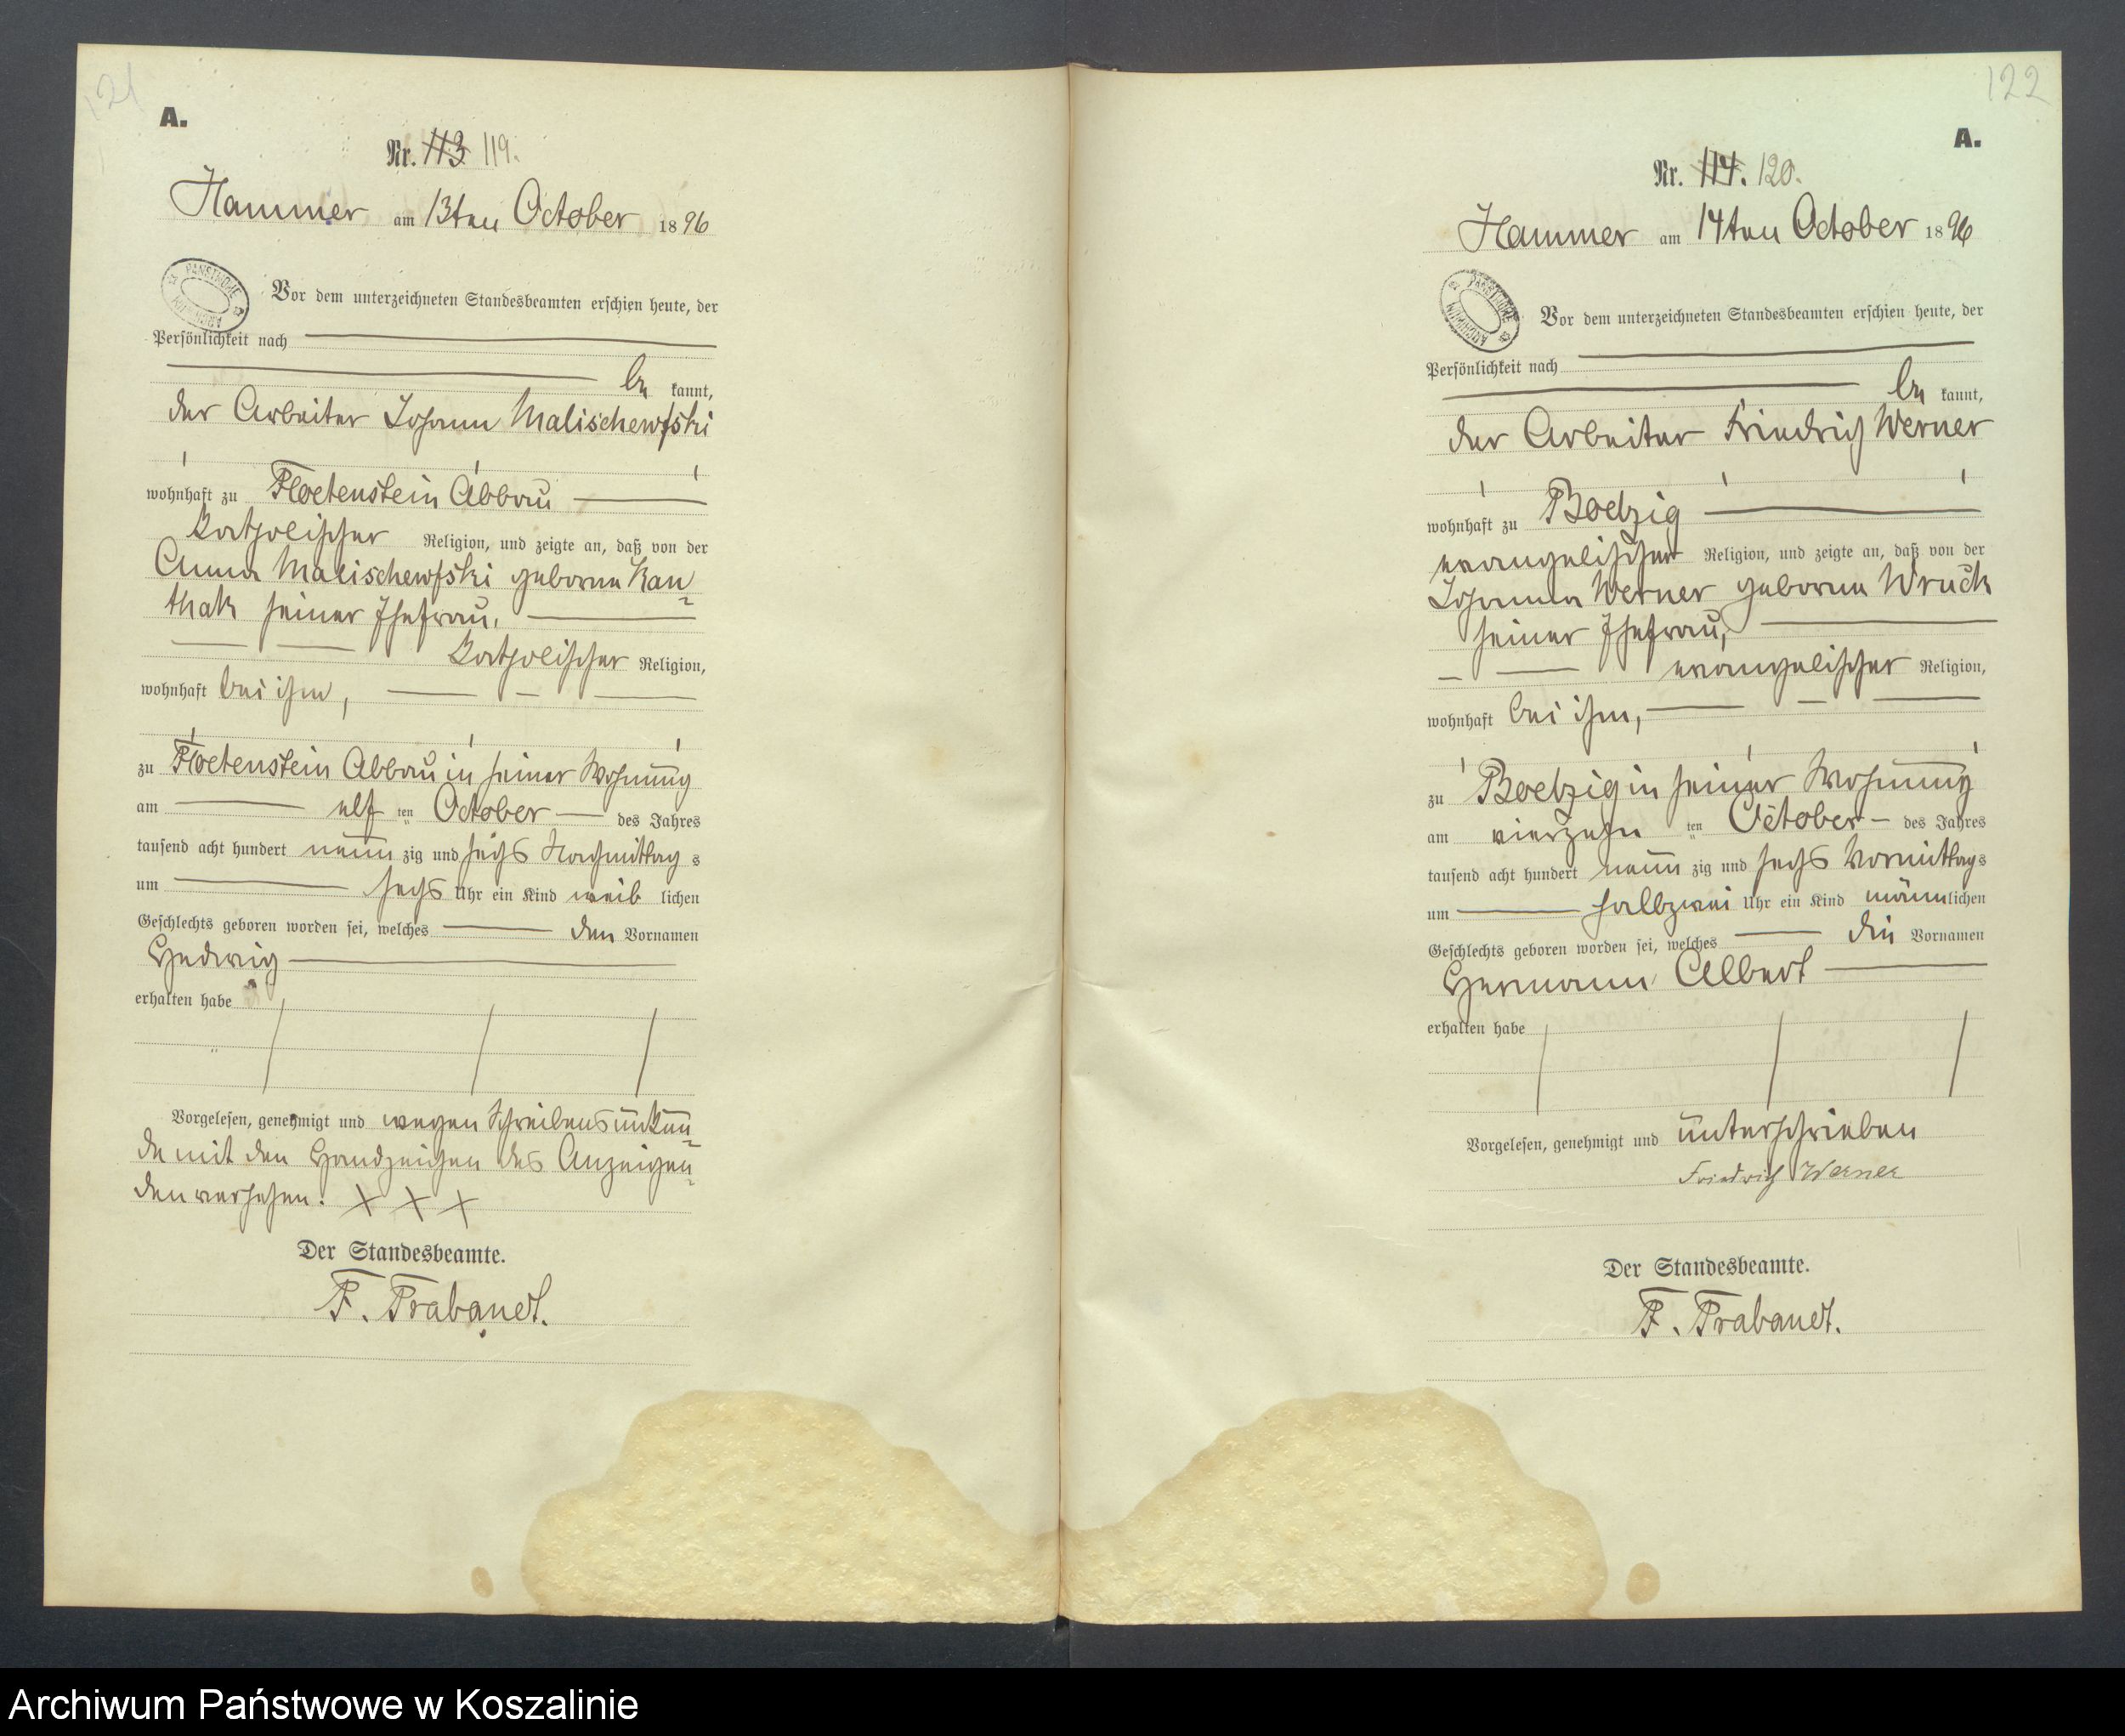 121
A.
Nr. 113 119.
Hammer am 13ten October 1896
PAŃSTWOWE ARCHIWUM
Vor dem unterzeichneten Standesbeamten erschien heute, der
Persönlichkeit nach
be kannt,
der Arbeiter Johann Malischewski
wohnhaft zu Floetenstein Abbau
katholischer Religion, und zeigte an, daß von der
Anna Malischewski geborne Kan-
thak seiner Ehefrau,
katholischer Religion,
wohnhaft bei ihm,
zu Floetenstein Abbau in seiner Wohnung
am elf ten October des Jahres
tausend acht hundert neun zig und sechs Nachmittag s
um sechs Uhr ein Kind weib lichen
Geschlechts geboren worden sei, welches den Vornamen
Hedwig
erhalten habe
Vorgelesen, genehmigt und wegen Schreibensunkun-
de mit den Handzeichen des Anzeigen-
den versehen. X X X
Der Standesbeamte.
F. Trabandt.
122
A.
Nr. 114. 120.
Hammer am 14ten October 1896
PAŃSTWOWE ARCHIWUM
Vor dem unterzeichneten Standesbeamten erschien heute, der
Persönlichkeit nach
be kannt,
der Arbeiter Friedrich Werner
wohnhaft zu Boelzig
evangelischer Religion, und zeigte an, daß von der
Johanna Werner geborne Wruck
seiner Ehefrau,
evangelischer Religion,
wohnhaft bei ihm,
zu Boelzig in seiner Wohnung
am vierzehn ten October des Jahres
tausend acht hundert neun zig und sechs Vormittags
um halbzwei Uhr ein Kind männlichen
Geschlechts geboren worden sei, welches die Vornamen
Hermann Albert
erhalten habe
Vorgelesen, genehmigt und unterschrieben
Friedrich Werner
Der Standesbeamte.
F. Trabandt.
Archiwum Państwowe w Koszalinie